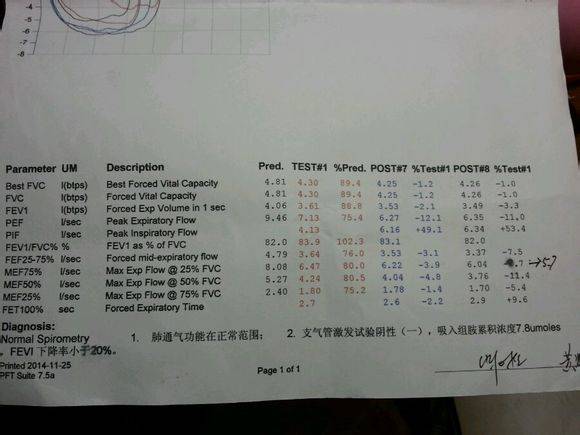 -4
-5
-6
-7
-8
Parameter UM Description Pred. TEST#1 %Pred. POST#7 %Test#1 POST#8 %Test#1
Best FVC l(btps) Best Forced Vital Capacity 4.81 4.30 89.4 4.25 -1.2 4.26 -1.0
FVC l(btps) Forced Vital Capacity 4.81 4.30 89.4 4.25 -1.2 4.26 -1.0
FEV1 l(btps) Forced Exp Volume in 1 sec 4.06 3.61 88.8 3.53 -2.1 3.49 -3.3
PEF l/sec Peak Expiratory Flow 9.46 7.13 75.4 6.27 -12.1 6.35 -11.0
PIF l/sec Peak Inspiratory Flow 4.13 6.16 +49.1 6.34 +53.4
FEV1/FVC% % FEV1 as % of FVC 82.0 83.9 102.3 83.1 82.0
FEF25-75% l/sec Forced mid-expiratory flow 4.79 3.64 76.0 3.53 -3.1 3.37 -7.5
MEF75% l/sec Max Exp Flow @ 25% FVC 8.08 6.47 80.0 6.22 -3.9 6.04 .7 →5.7
MEF50% l/sec Max Exp Flow @ 50% FVC 5.27 4.24 80.5 4.04 -4.8 3.76 -11.4
MEF25% l/sec Max Exp Flow @ 75% FVC 2.40 1.80 75.2 1.78 -1.4 1.70 -5.4
FET100% sec Forced Expiratory Time 2.7 2.6 -2.2 2.9 +9.6
Diagnosis:
Normal Spirometry 1. 肺通气功能在正常范围; 2. 支气管激发试验阴性(一),吸入组胺累积浓度7.8umoles
,FEVI 下降率小于20%。
Printed 2014-11-25
PFT Suite 7.5a
Page 1 of 1